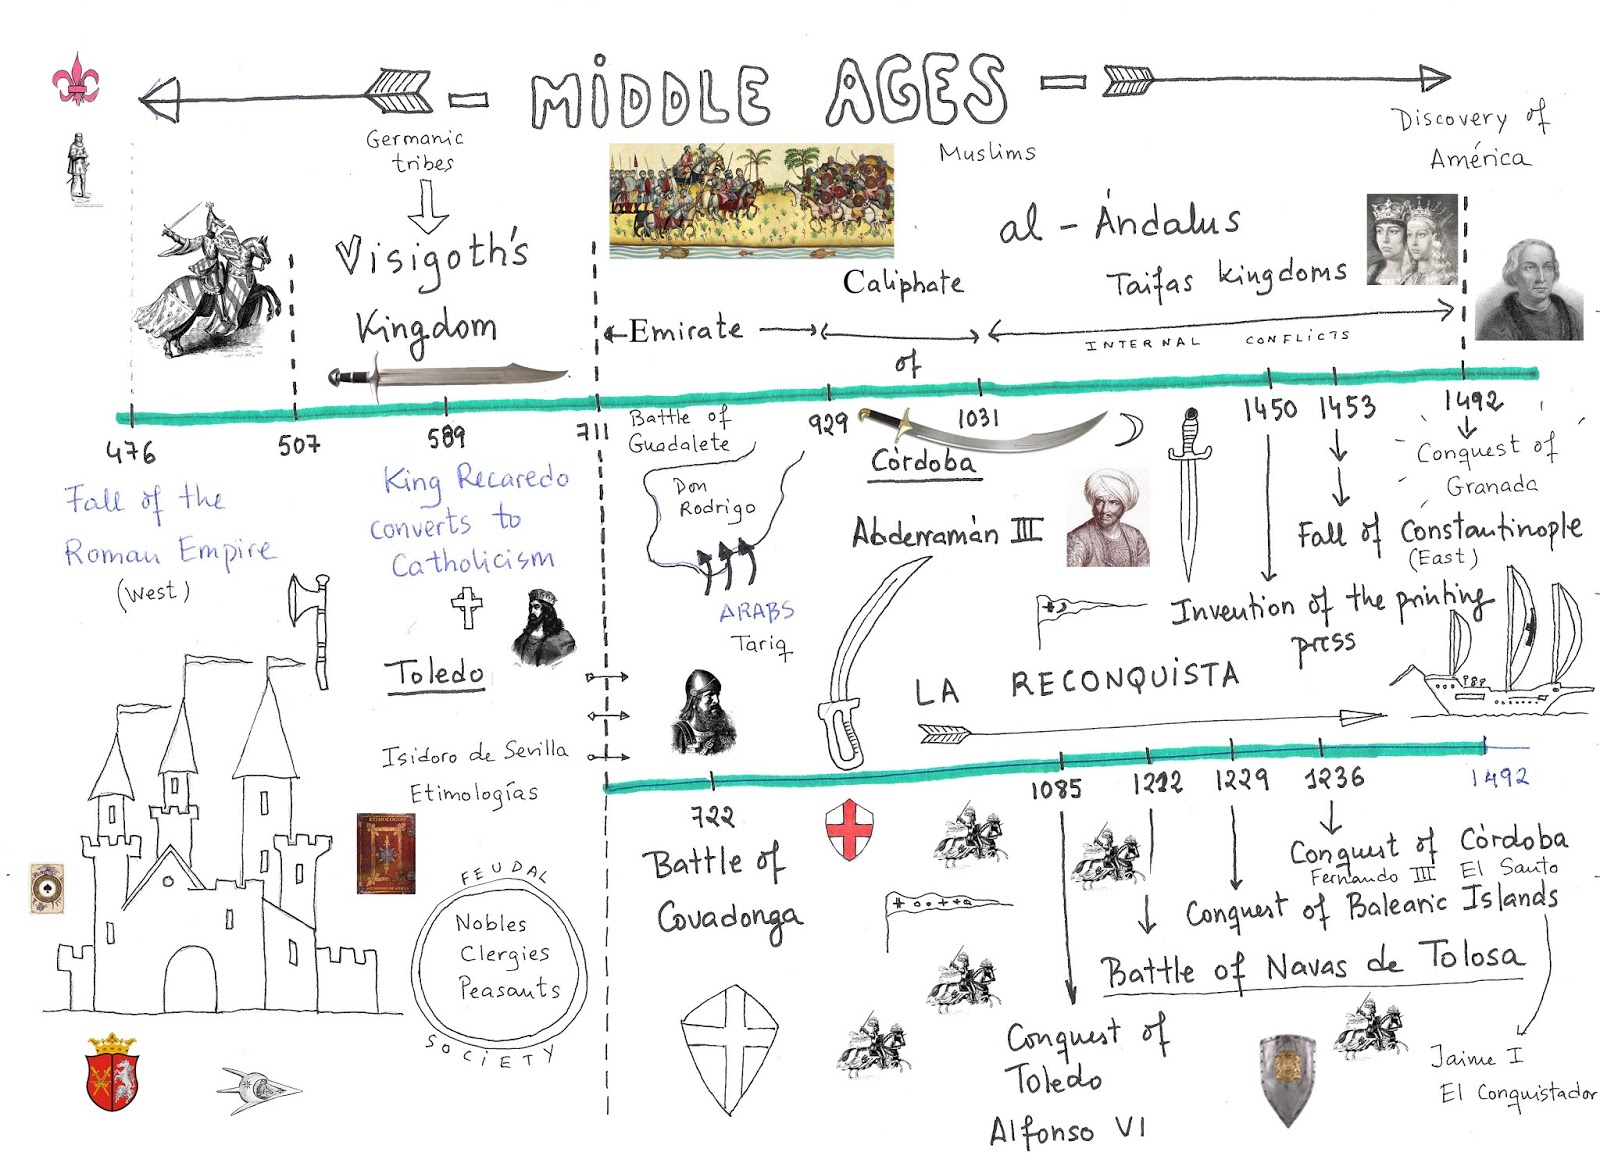 MIDDLE AGES
Germanic
tribes
Visigoth's
Kingdom
Muslims
al-Ándalus
Caliphate
of
Emirate
Taifas kingdoms
INTERNAL CONFLICTS
Discovery of
América
476
507
589
711
929
1031
1450
1453
1492
Fall of the
Roman Empire
(West)
King Recaredo
converts to
Catholicism
Toledo
Isidoro de Sevilla
Etimologías
FEUDAL
Nobles
Clergies
Peasants
SOCIETY
Battle of
Guadalete
Don
Rodrigo
ARABS
Tariq
Córdoba
Abderramán III
Conquest of
Granada
Fall of Constantinople
(East)
Invention of the printing
press
LA RECONQUISTA
722
1085
1212
1229
1236
1492
Battle of
Covadonga
Conquest of Córdoba
Fernando III El Santo
Conquest of Balearic Islands
Battle of Navas de Tolosa
Conquest of
Toledo
Alfonso VI
Jaime I
El Conquistador